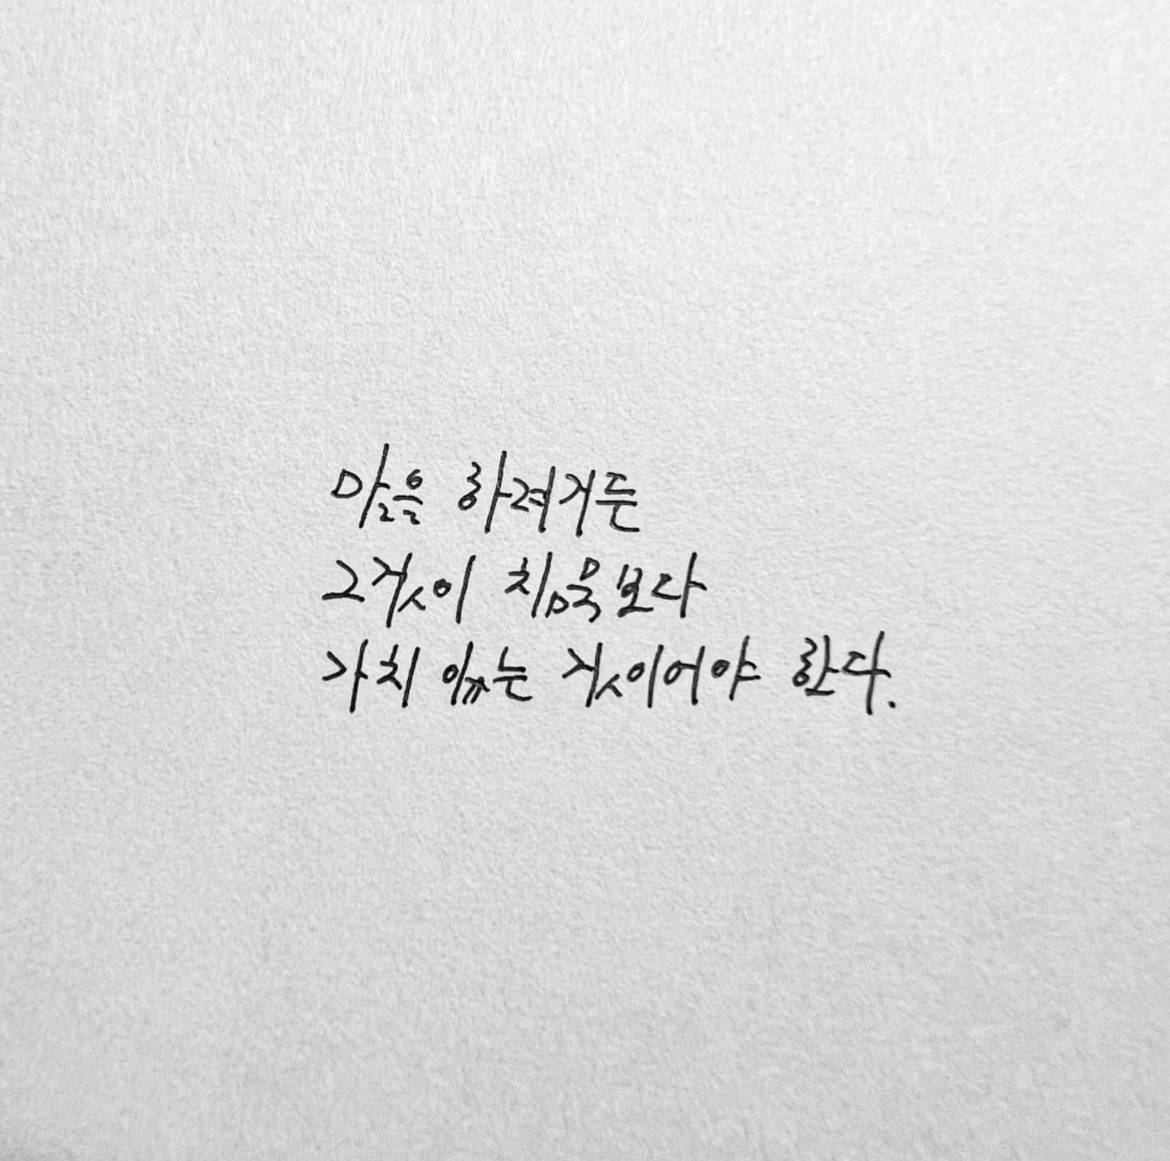 말을 하려거든
그것이 침묵보다
가치 있는 것이어야 한다.